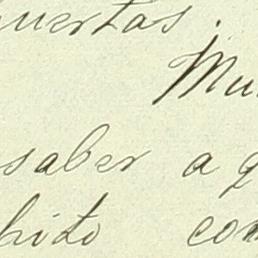 uertas.
Mu
saber a q
bito com